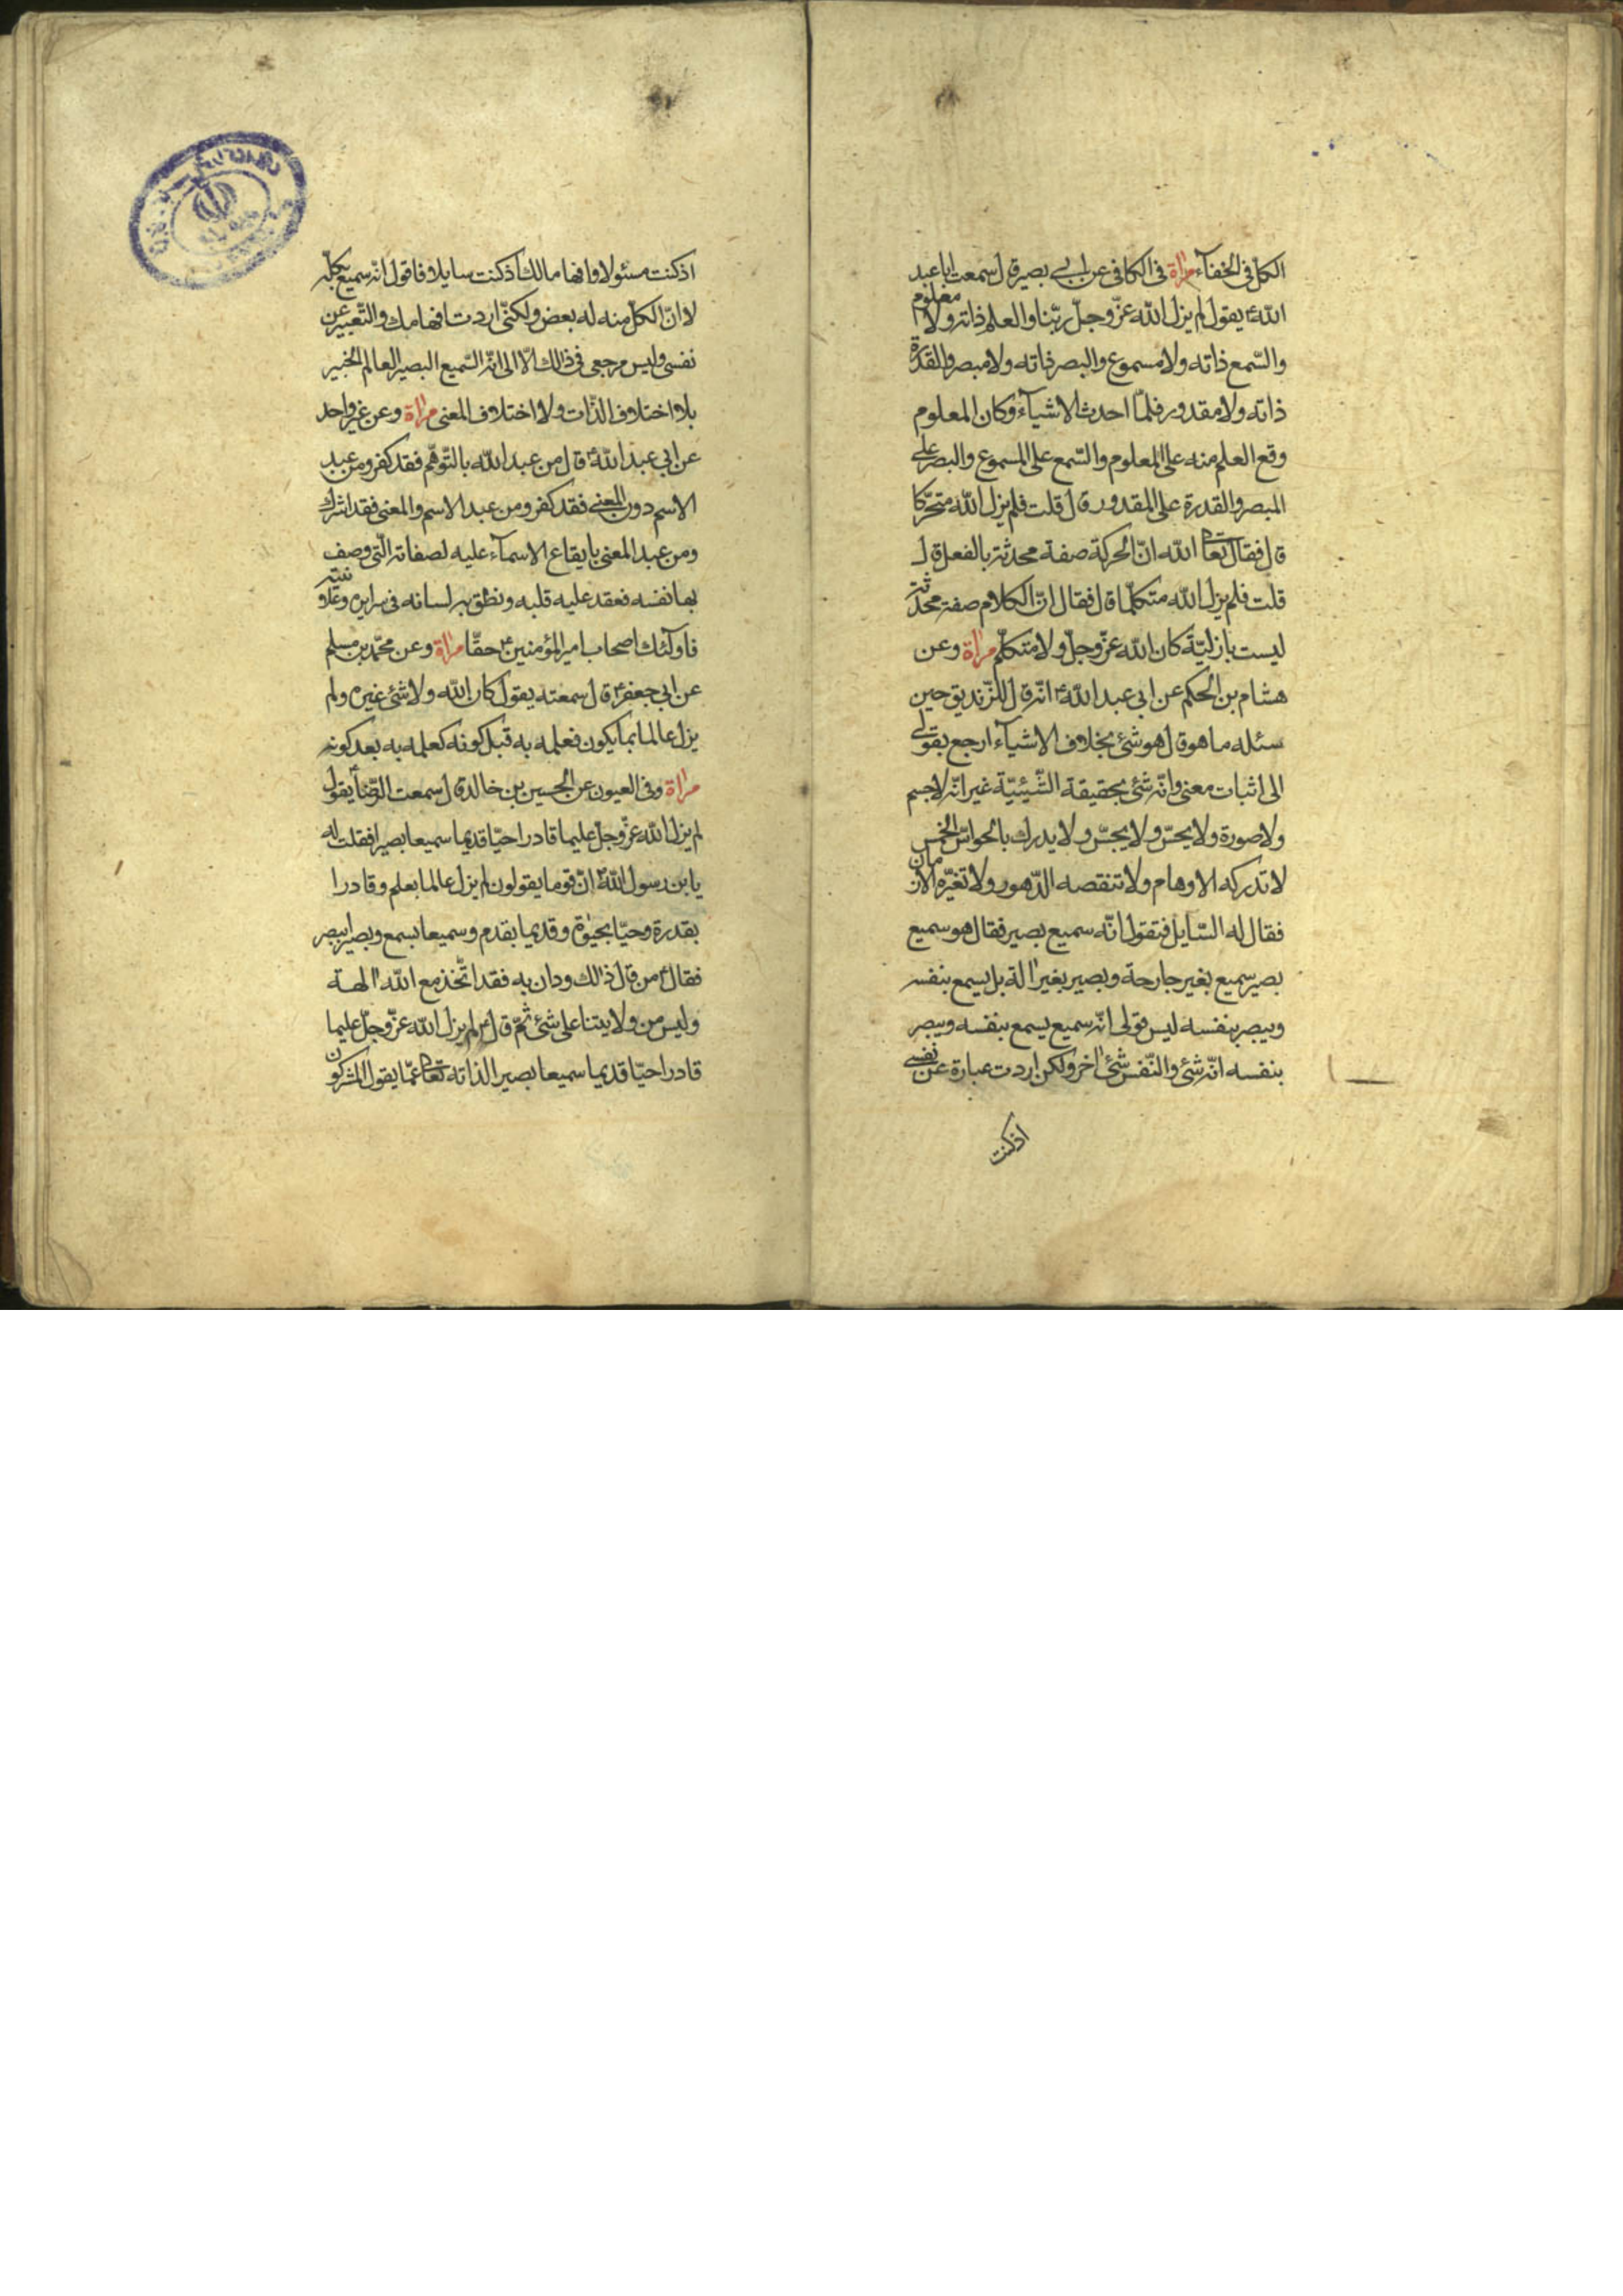 الكلّ فى الخفآء مرٰاة فى الكافى عن ابى بصير قال سمعت ابا عبد
اللّهؑ يقول لم يزل اللّه عزّ وجلّ ربّنا والعلم ذاته ولا معلوم
والسّمع ذاته ولا مسموع والبصر ذاته ولا مبصر والقدرة
ذاته ولا مقدور فلمّا احدث الاشيآء وكان المعلوم
وقع العلم منه على المعلوم والسّمع على المسموع والبصر على
المبصر والقدرة على المقدور قال قلت فلم يزل اللّه متحرّكا
قال فقال تعالى اللّه انّ الحركة صفة محدثة بالفعل قال
قلت فلم يزل اللّه متكلّما قال فقال انّ الكلام صفة محدثة
ليست بازليّة كان اللّه عزّ وجلّ ولا متكلّم مرٰاة وعن
هشام بن الحكم عن ابى عبد اللّهؑ انّه قال للزّنديق حين
سئله ما هو قال هو شئ بخلاف الاشيآء ارجع بقولى
الى اثبات معنى وانّه شئ بحقيقة الشّيئيّة غير انّه لا جسم
ولا صورة ولا يحسّ ولا يجسّ ولا يدرك بالحواسّ الخمس
لا تدركه الاوهام ولا تنقصه الدّهور ولا تغيّره الازمان
فقال له السّايل فتقول انّه سميع بصير فقال هو سميع
بصير سميع بغير جارحة وبصير بغير اٰلة بل يسمع بنفسه
ويبصر بنفسه ليس قولى انّه سميع يسمع بنفسه ويبصر
بنفسه انّه شئ والنّفس شئ اٰخر ولكن اردت عبارة عن نفسى
اذ كنت
اذ كنت مسئولا وافهاما لك اذ كنت سايلا فاقول انّه سميع بكلّه
لا انّ الكلّ منه له بعض ولكنّى اردت افهامك والتّعبير عن
نفسى وليس مرجعى فى ذالك الّا الى انّه السّميع البصير العالم الخبير
بلا اختلاف الذّات ولا اختلاف المعنى مرٰاة وعن غير واحد
عن ابى عبد اللّهؑ قال من عبد اللّه بالتّوهّم فقد كفر ومن عبد
الاسم دون المعنى فقد كفر ومن عبد الاسم والمعنى فقد اشرك
ومن عبد المعنى بايقاع الاسمآء عليه لصفاته الّتى وصف
بها نفسه فعقد عليه قلبه ونطق به لسانه فى سرايره وعلانيته
فاولٰئك اصحاب امير المؤمنينؑ حقّا مرٰاة وعن محمّد بن مسلم
عن ابى جعفرؑ قال سمعته يقول كان اللّه ولا شئ غيره ولم
يزل عالما بما يكون فعلمه به قبل كونه كعلمه به بعد كونه
مرٰاة وفى العيون عن الحسين بن خالد قال سمعت الرّضاؑ يقول
لم يزل اللّه عزّ وجلّ عليما قادرا حيّا قديما سميعا بصيرا فقلت له
يا بن رسول اللّهؐ انّ قوما يقولون لم يزل عالما بعلم وقادرا
بقدرة وحيّا بحيوٰة وقديما بقدم وسميعا بسمع وبصيرا ببصر
فقالؑ من قال ذالك ودان به فقد اتّخذ مع اللّه اٰلهة
وليس من ولايتنا على شئ ثمّ قالؑ لم يزل اللّه عزّ وجلّ عليما
قادرا حيّا قديما سميعا بصيرا لذاته تعالى عمّا يقول المشركون